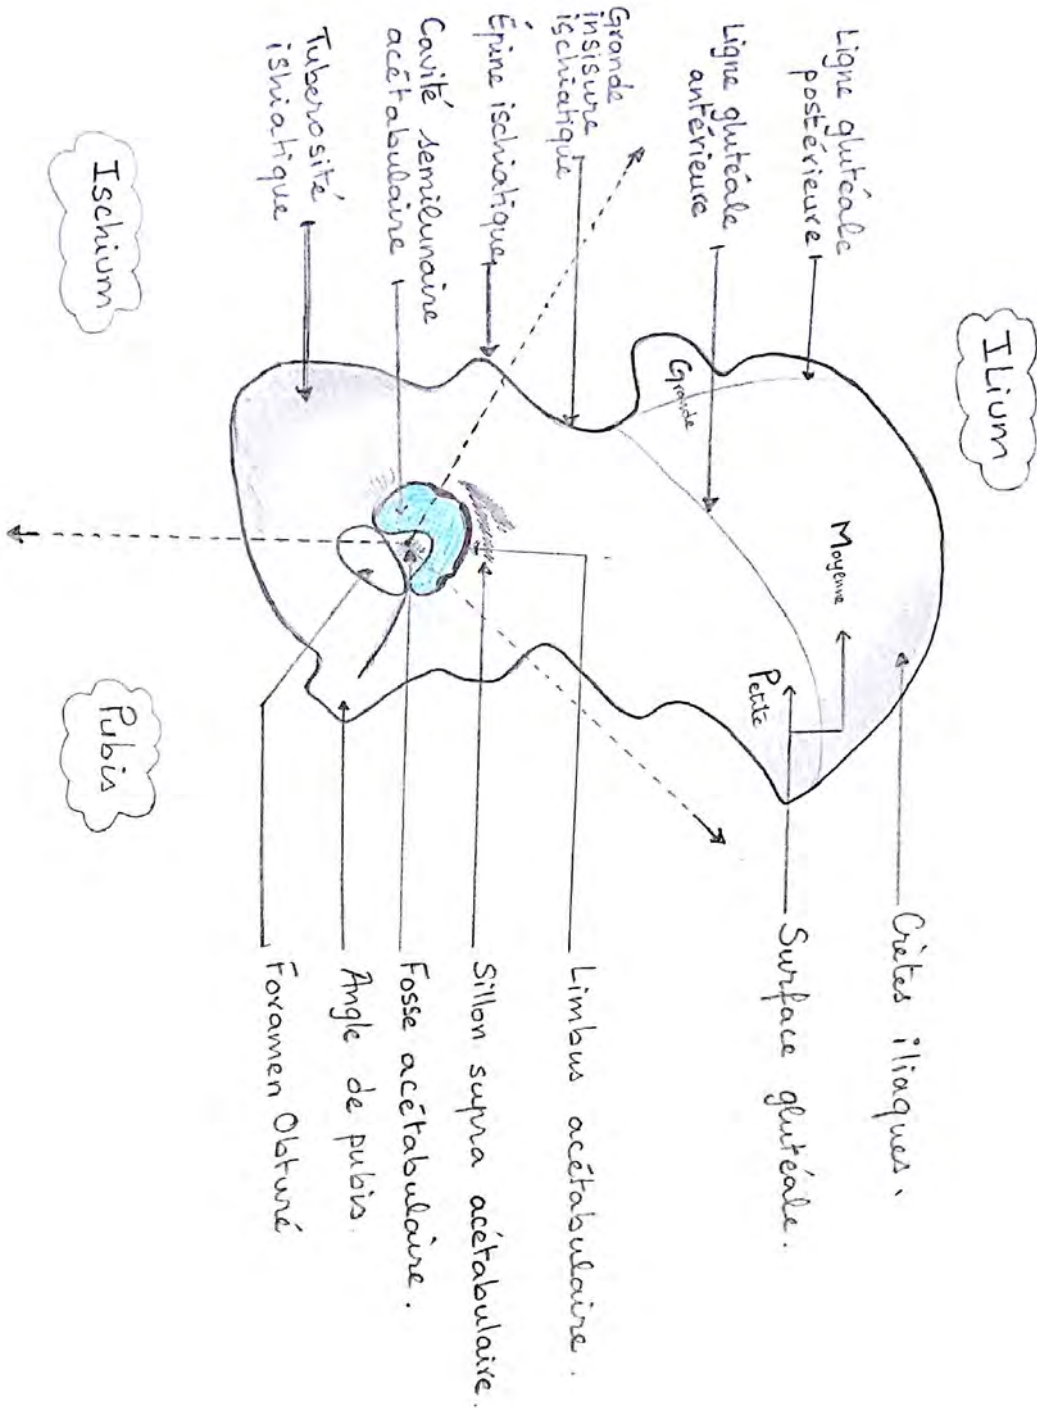 ILium
Ligne glutéale
postérieure
Ligne glutéale
antérieure
Grande
insisure
ischiatique
Épine ischiatique
Cavité semilunaire
acétabulaire
Tuberosité
ishiatique
Ischium
Grande
Moyenne
Petite
Crètes iliaques.
Surface glutéale.
Limbus acétabulaire.
Sillon supra acétabulaire.
Fosse acétabulaire.
Angle de pubis.
Foramen Obturé
Pubis